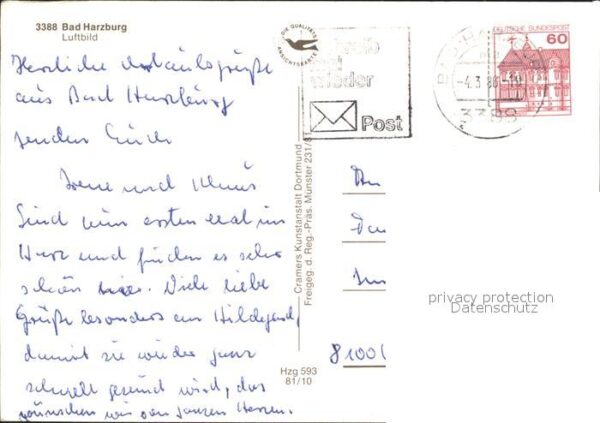 3388 Bad Harzburg
Luftbild
DIE QUALITÄTS
ANSICHTSKARTE
mal
wieder
Post
BAD HARZBURG
-4.3.86-10
3388
DEUTSCHE BUNDESPOST
60
Herzliche Urlaubsgrüße
aus Bad Harzburg
senden Euch
Irene und Klaus
Sind zum ersten mal im
Harz und finden es sehr
schön hier. Viele liebe
Grüße besonders an Hildegard,
damit sie wieder ganz
schnell gesund wird, das
wünschen wir von ganzen Herzen.
Cramers Kunstanstalt Dortmund
Freigeg. d. Reg.-Präs. Münster 231/81
An
Fam
8100
Hzg 593
81/10
privacy protection
Datenschutz